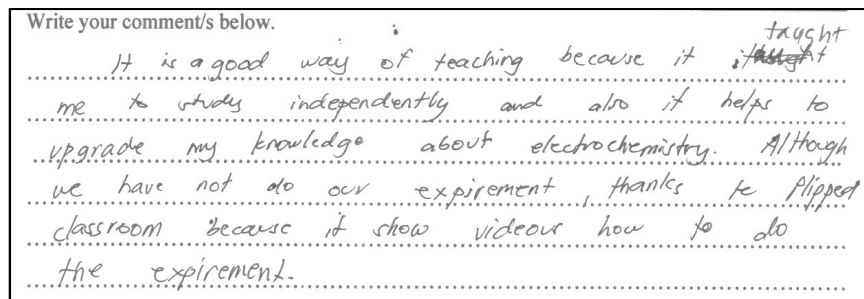 Write your comment/s below.
taught
It is a good way of teaching because it
me to study independently and also it helps to
upgrade my knowledge about electrochemistry. Although
we have not do our expirement, thanks to flipped
classroom because it show videous how to do
the expirement.